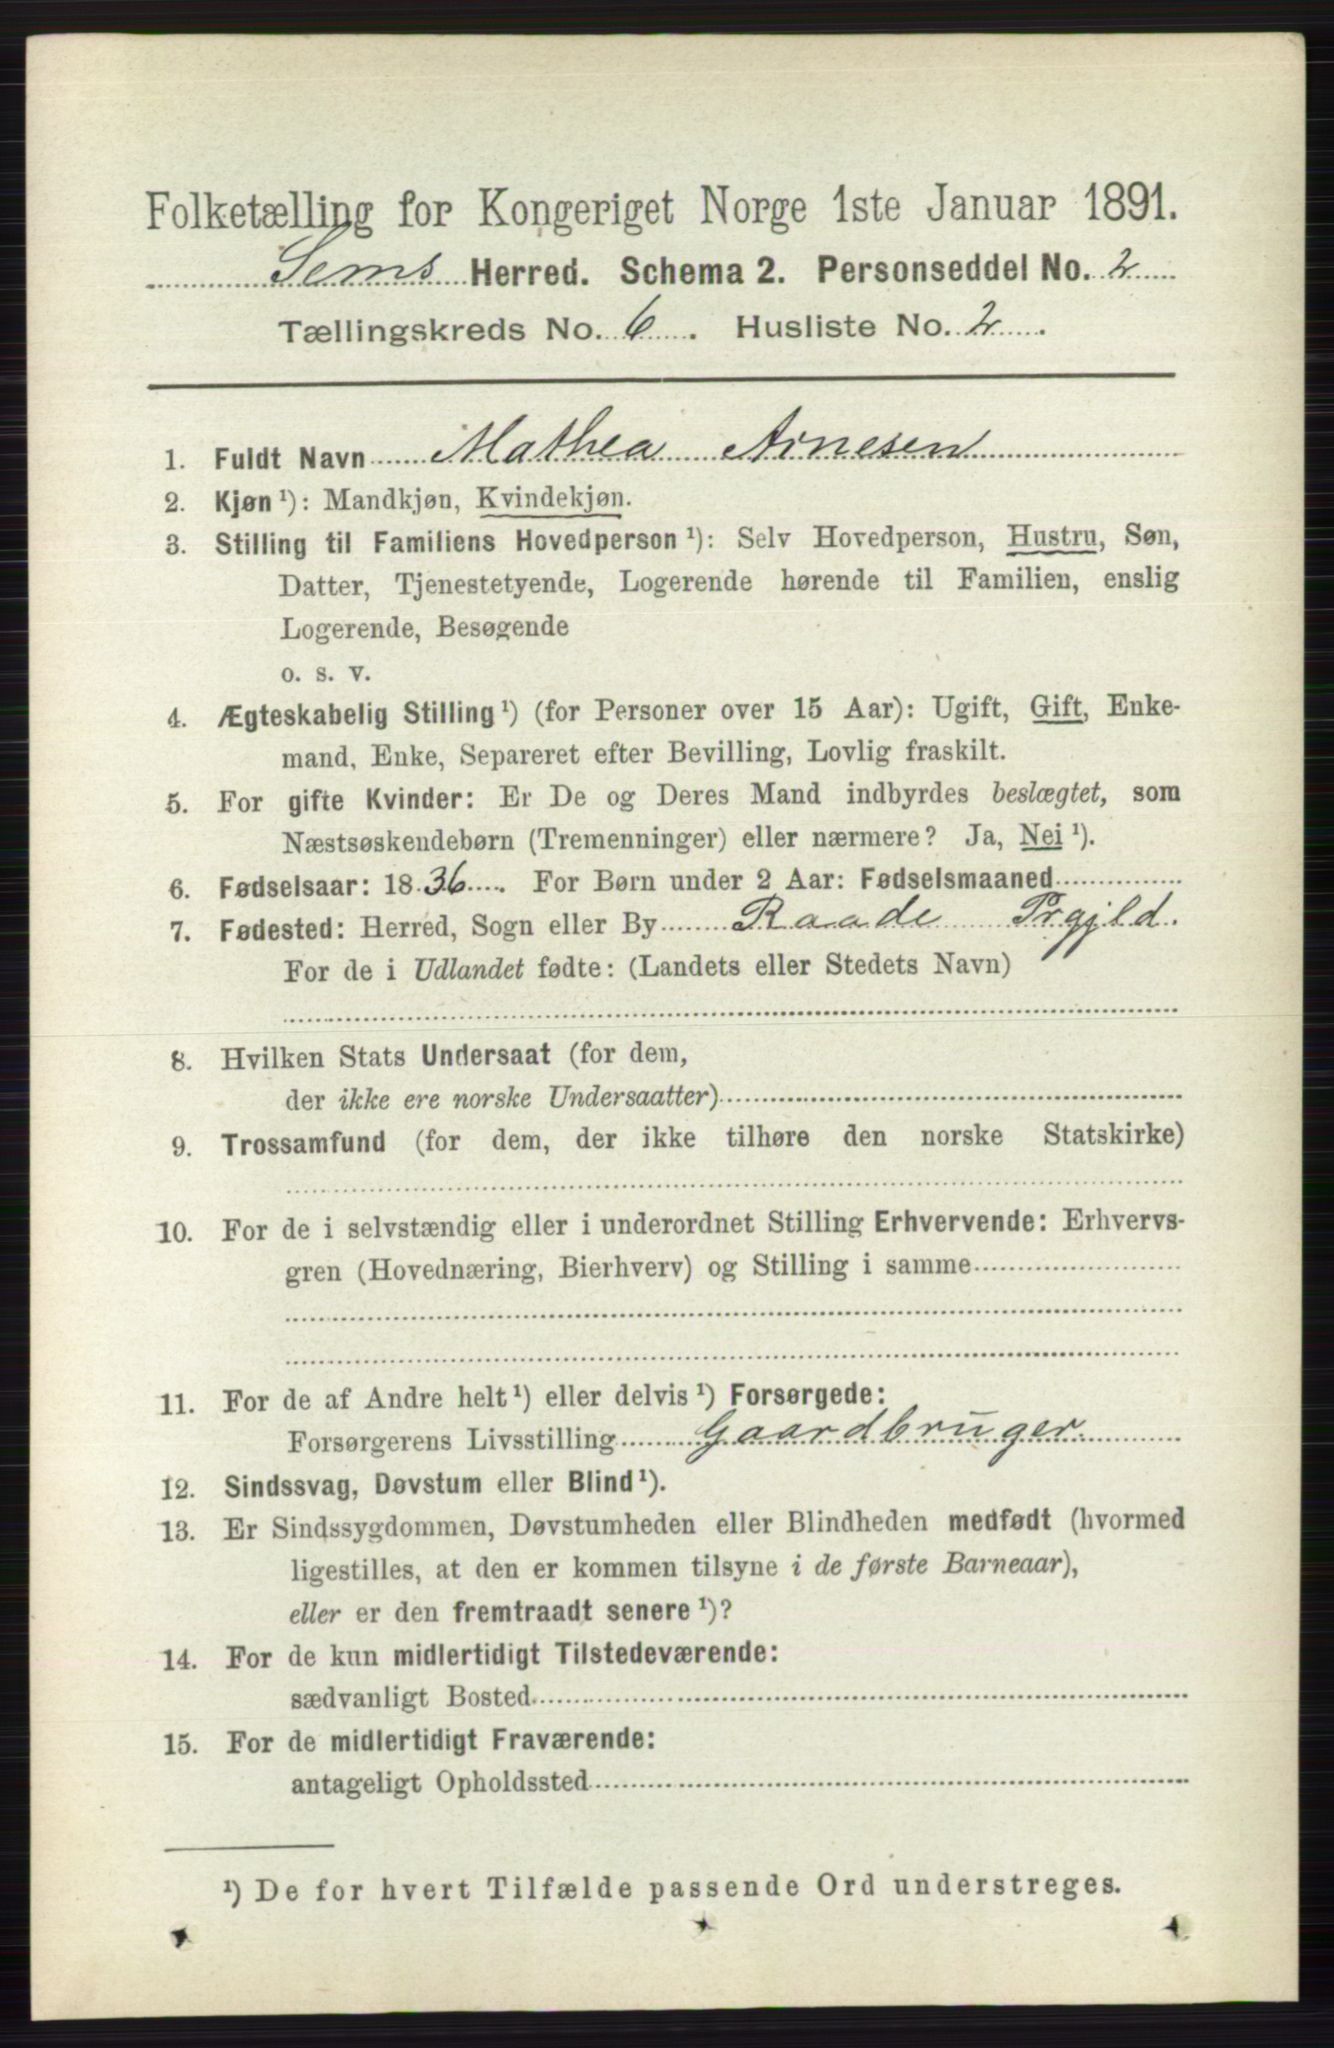 Folketælling for Kongeriget Norge 1ste Januar 1891.
Sems Herred. Schema 2. Personseddel No. 2
Tællingskreds No. 6. Husliste No. 2.
1. Fuldt Navn Mathea Arnesen
2. Kjøn ¹): Mandkjøn, Kvindekjøn.
3. Stilling til Familiens Hovedperson ¹): Selv Hovedperson, Hustru, Søn,
Datter, Tjenestetyende, Logerende hørende til Familien, enslig
Logerende, Besøgende
o. s. v.
4. Ægteskabelig Stilling ¹) (for Personer over 15 Aar): Ugift, Gift, Enke-
mand, Enke, Separeret efter Bevilling, Lovlig fraskilt.
5. For gifte Kvinder: Er De og Deres Mand indbyrdes beslægtet, som
Næstsøskendebørn (Tremenninger) eller nærmere? Ja, Nei ¹).
6. Fødselsaar: 1836. For Børn under 2 Aar: Fødselsmaaned
7. Fødested: Herred, Sogn eller By Raade Prgjld.
For de i Udlandet fødte: (Landets eller Stedets Navn)
8. Hvilken Stats Undersaat (for dem,
der ikke ere norske Undersaatter)
9. Trossamfund (for dem, der ikke tilhøre den norske Statskirke)
10. For de i selvstændig eller i underordnet Stilling Erhvervende: Erhvervs-
gren (Hovednæring, Bierhverv) og Stilling i samme
11. For de af Andre helt ¹) eller delvis ¹) Forsørgede:
Forsørgerens Livsstilling Gaardbruger
12. Sindssvag, Døvstum eller Blind ¹).
13. Er Sindssygdommen, Døvstumheden eller Blindheden medfødt (hvormed
ligestilles, at den er kommen tilsyne i de første Barneaar),
eller er den fremtraadt senere ¹)?
14. For de kun midlertidigt Tilstedeværende:
sædvanligt Bosted
15. For de midlertidigt Fraværende:
antageligt Opholdssted
¹) De for hvert Tilfælde passende Ord understreges.